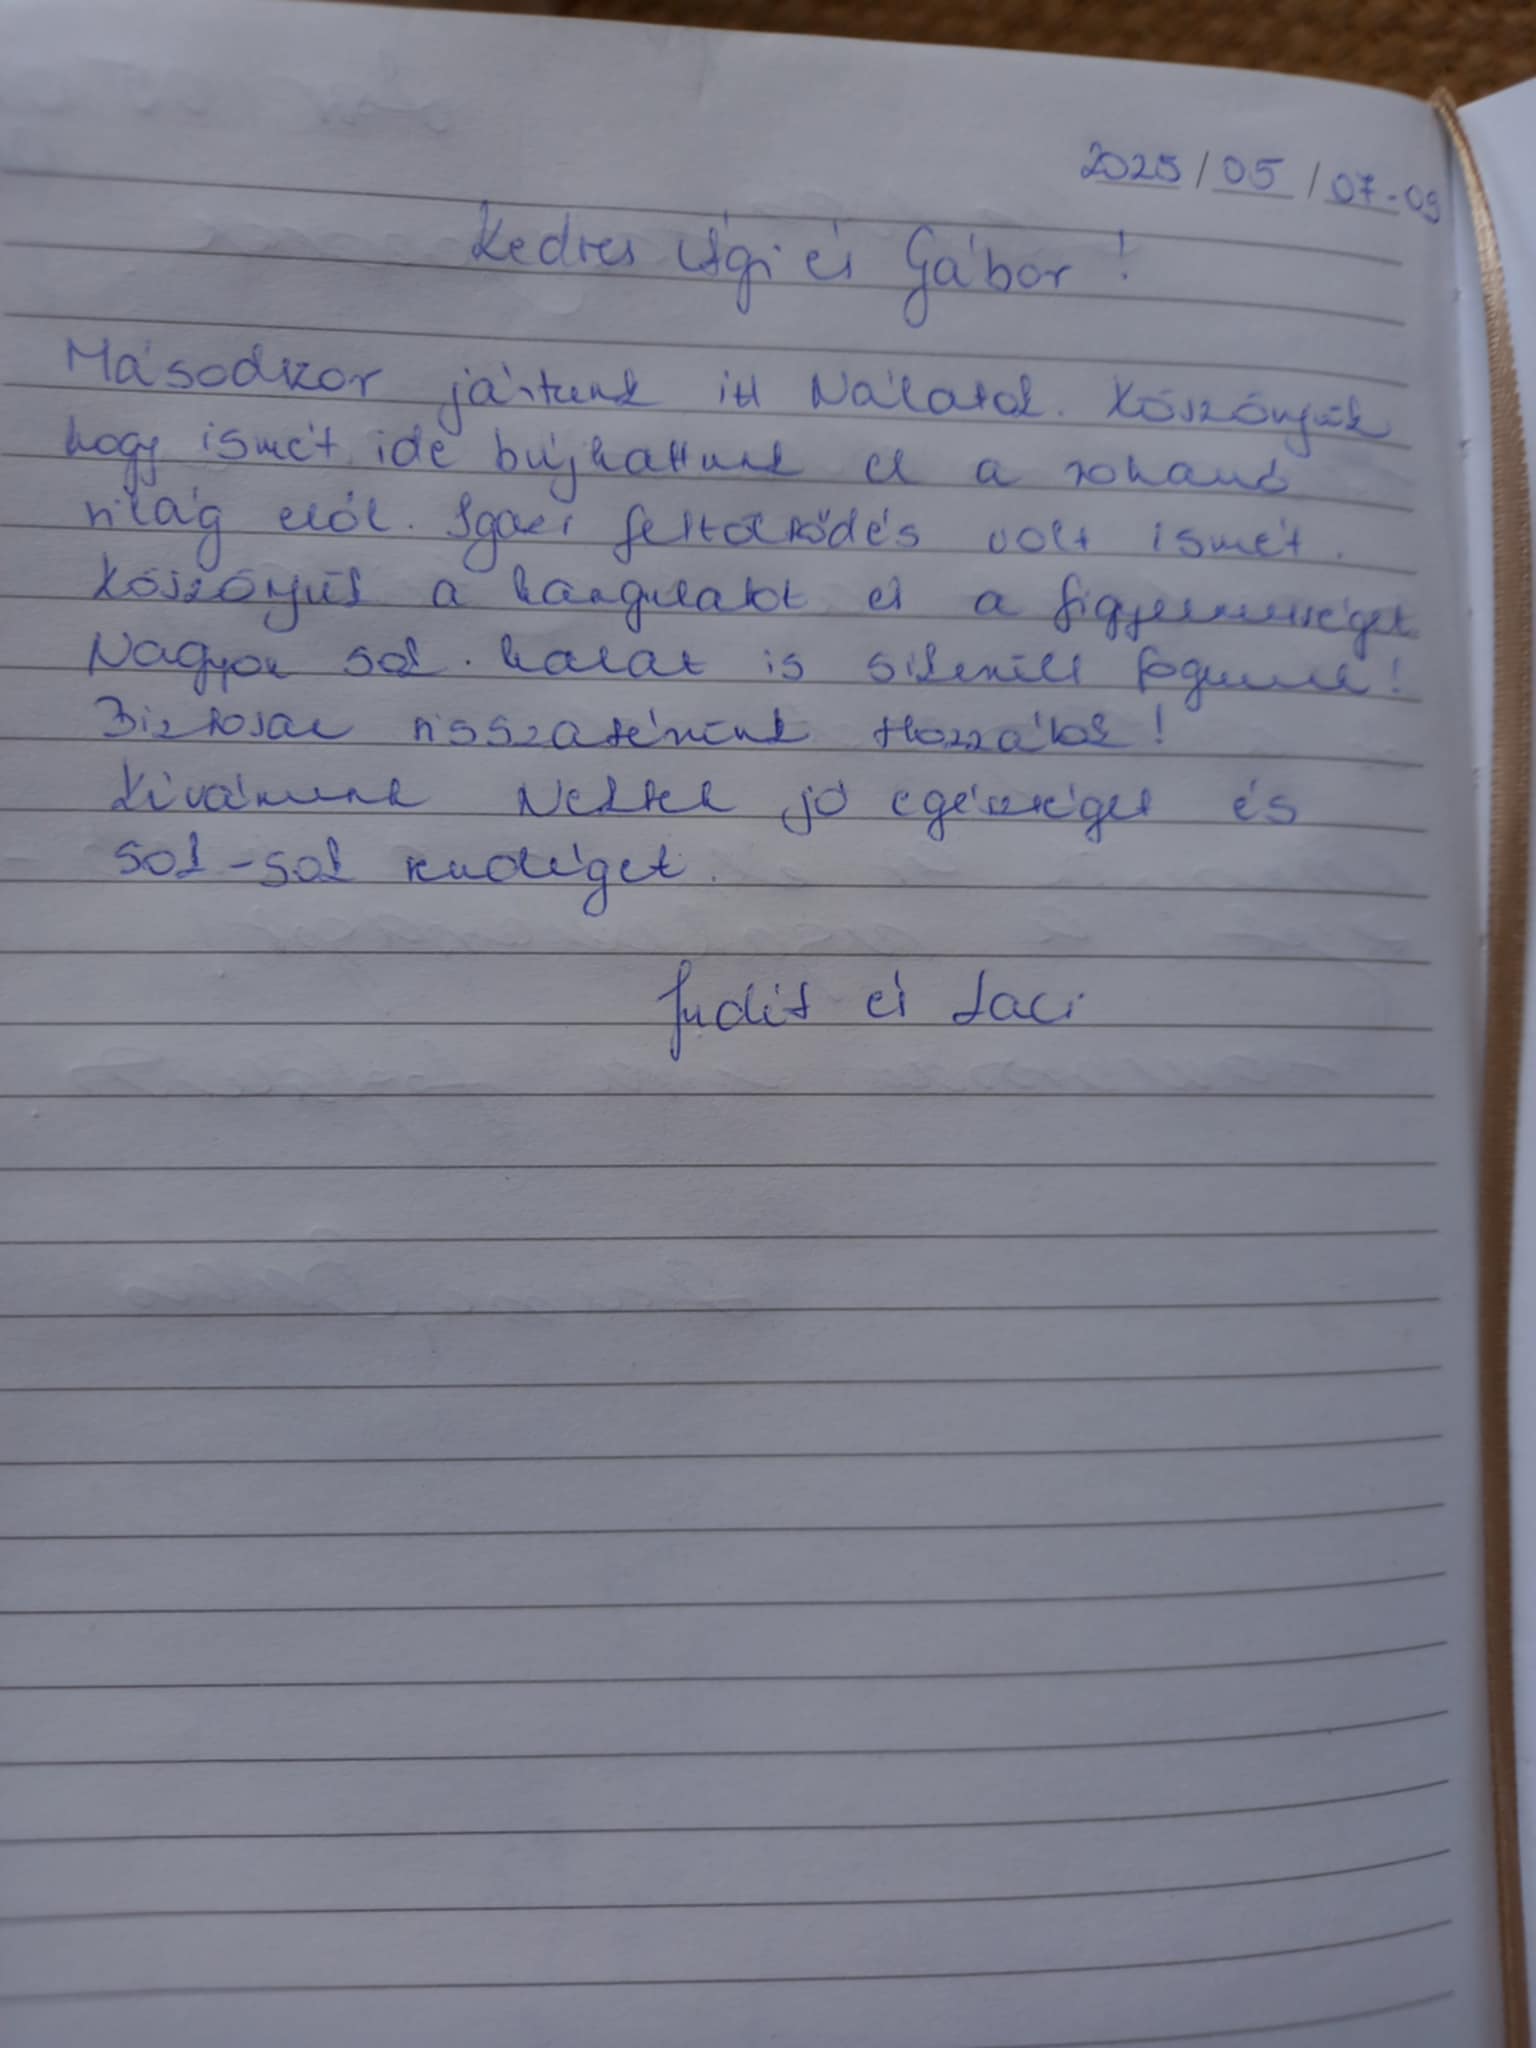 2025/05/07-09
Kedves Ági és Gábor!
Másodszor jártunk itt Nálatok. Köszönjük
hogy ismét ide bújhattunk el a rohanó
világ elől. Igazi feltöltődés volt ismét.
Köszönjük a hangulatot és a figyelmességet.
Nagyon sok halat is sikerült fognunk!
Biztosan visszatérünk Hozzátok!
Kívánunk Nektek jó egészséget és
sok-sok vendéget.
Judit és Laci